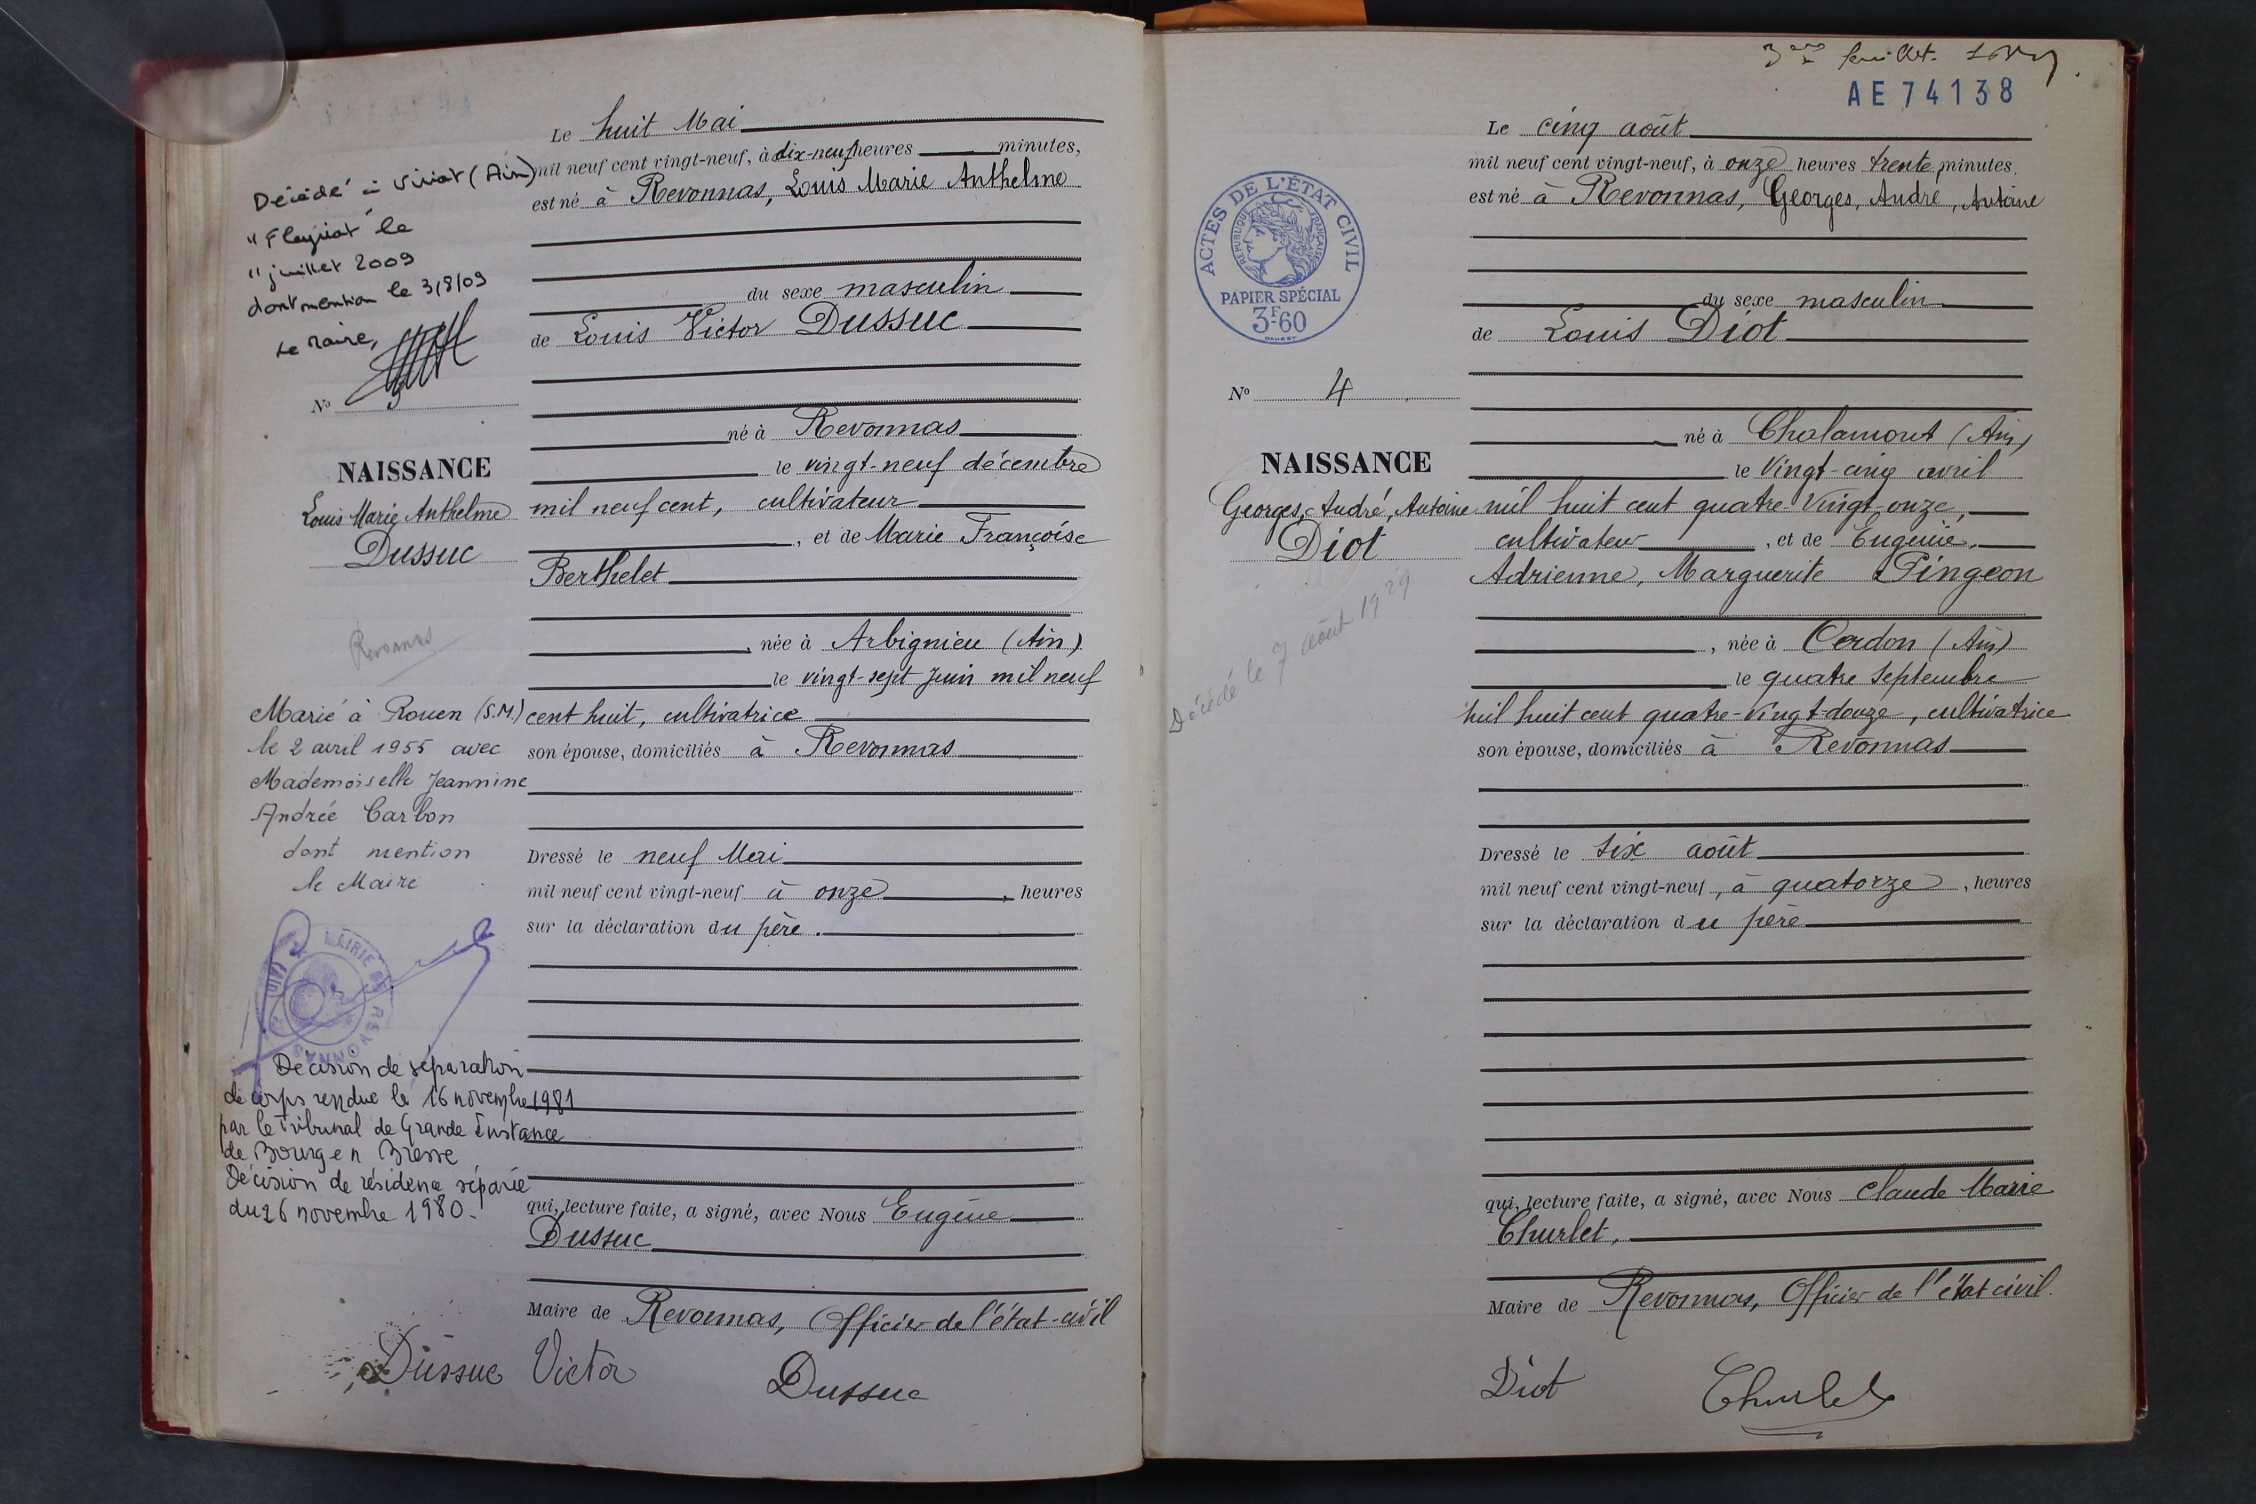 Le huit Mai
mil neuf cent vingt-neuf, à dix-neuf heures minutes,
est né à Revonnas, Louis Marie Anthelme
du sexe masculin
de Louis Victor Dussuc
né à Revonnas
le vingt-neuf décembre
mil neuf cent, cultivateur
, et de Marie Françoise
Berthelet
, née à Arbignieu (Ain)
le vingt-sept juin mil neuf
cent huit, cultivatrice
son épouse, domiciliés à Revonnas
Dressé le neuf Mai
mil neuf cent vingt-neuf à onze, heures
sur la déclaration du père.
qui, lecture faite, a signé, avec Nous Eugène
Dussuc
Maire de Revonnas, Officier de l'état-civil
Dussuc Victor
Dussuc
Décédé à Viriat (Ain)
"Fleyriat" le
11 juillet 2009
dont mention le 3/8/09
Le Maire,
No
NAISSANCE
Louis Marie Anthelme
Dussuc
Revonnas
Marié à Rouen (S.M.)
le 2 avril 1955 avec
Mademoiselle Jeannine
Andrée Carbon
dont mention
le Maire
MAIRIE DE REVONNAS
Décision de séparation
de corps rendue le 16 novembre 1981
par le Tribunal de Grande Instance
de Bourg en Bresse
Décision de résidence séparée
du 26 novembre 1980.
3me feuillet.
AE 74138
ACTES DE L'ÉTAT CIVIL
RÉPUBLIQUE FRANÇAISE
PAPIER SPÉCIAL
3F.60
No 4
NAISSANCE
Georges, André, Antoine
Diot
Décédé le 7 août 1929
Le cinq août
mil neuf cent vingt-neuf, à onze heures trente minutes.
est né à Revonnas, Georges, André, Antoine
du sexe masculin
de Louis Diot
né à Chalamont (Ain)
le vingt-cinq avril
mil huit cent quatre-vingt-onze,
cultivateur, et de Eugénie,
Adrienne, Marguerite Pingeon
, née à Cerdon (Ain)
le quatre septembre
mil huit cent quatre-vingt-douze, cultivatrice
son épouse, domiciliés à Revonnas
Dressé le six août
mil neuf cent vingt-neuf, à quatorze, heures
sur la déclaration du père
qui, lecture faite, a signé, avec Nous Claude Marie
Churlet,
Maire de Revonnas, Officier de l'état civil.
Diot
Churlet